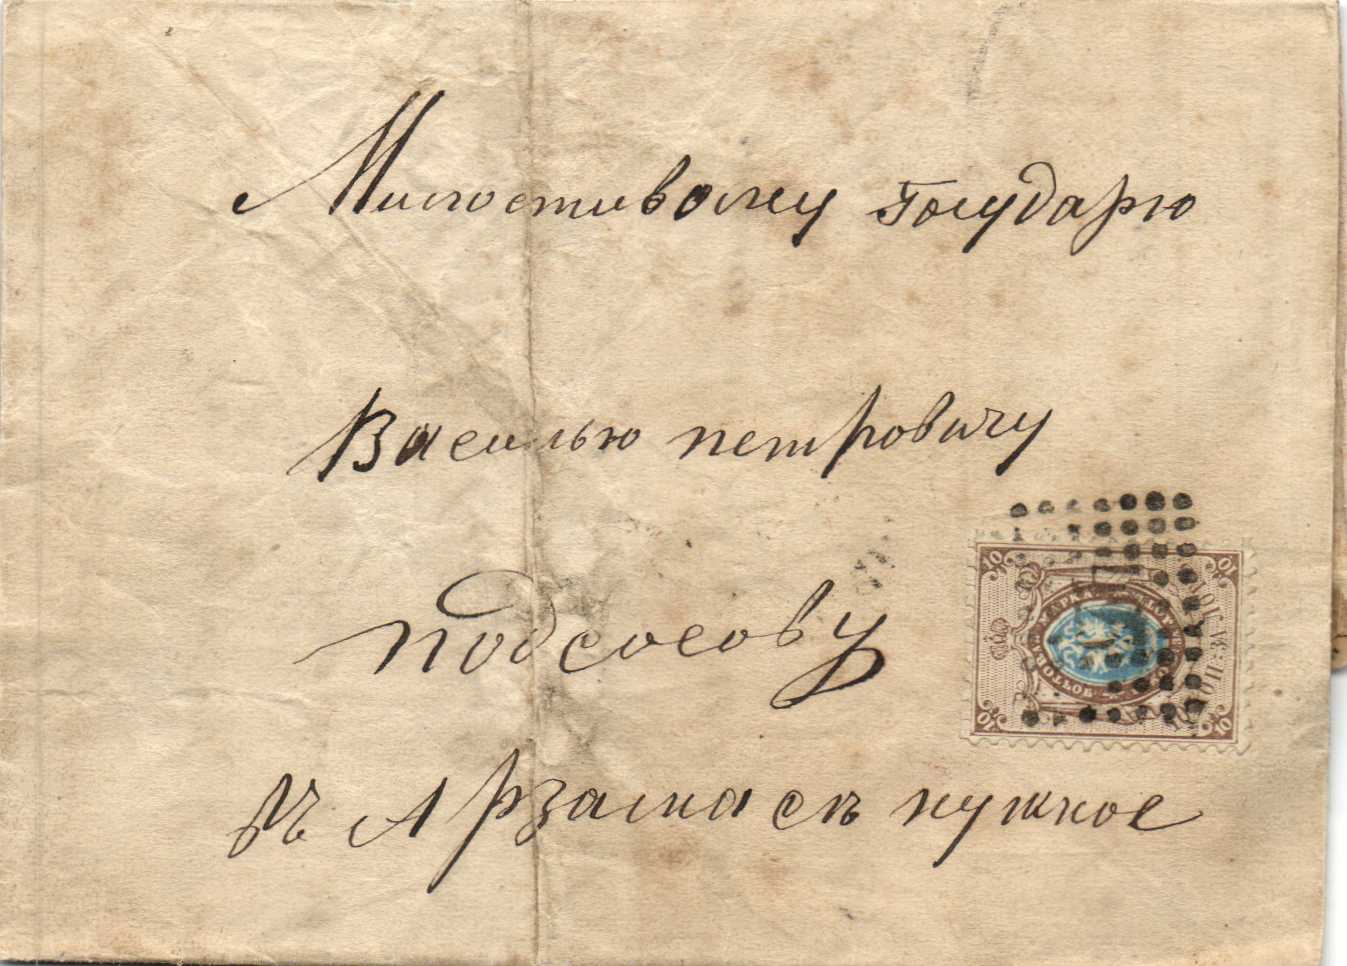 Милостивому Государю
Василью петровичу
подсосову
въ Арзамасъ нужное
10
10
10
10
ПОЧТОВАЯ МАРКА
10 КОП: ЗА ЛОТЪ
1